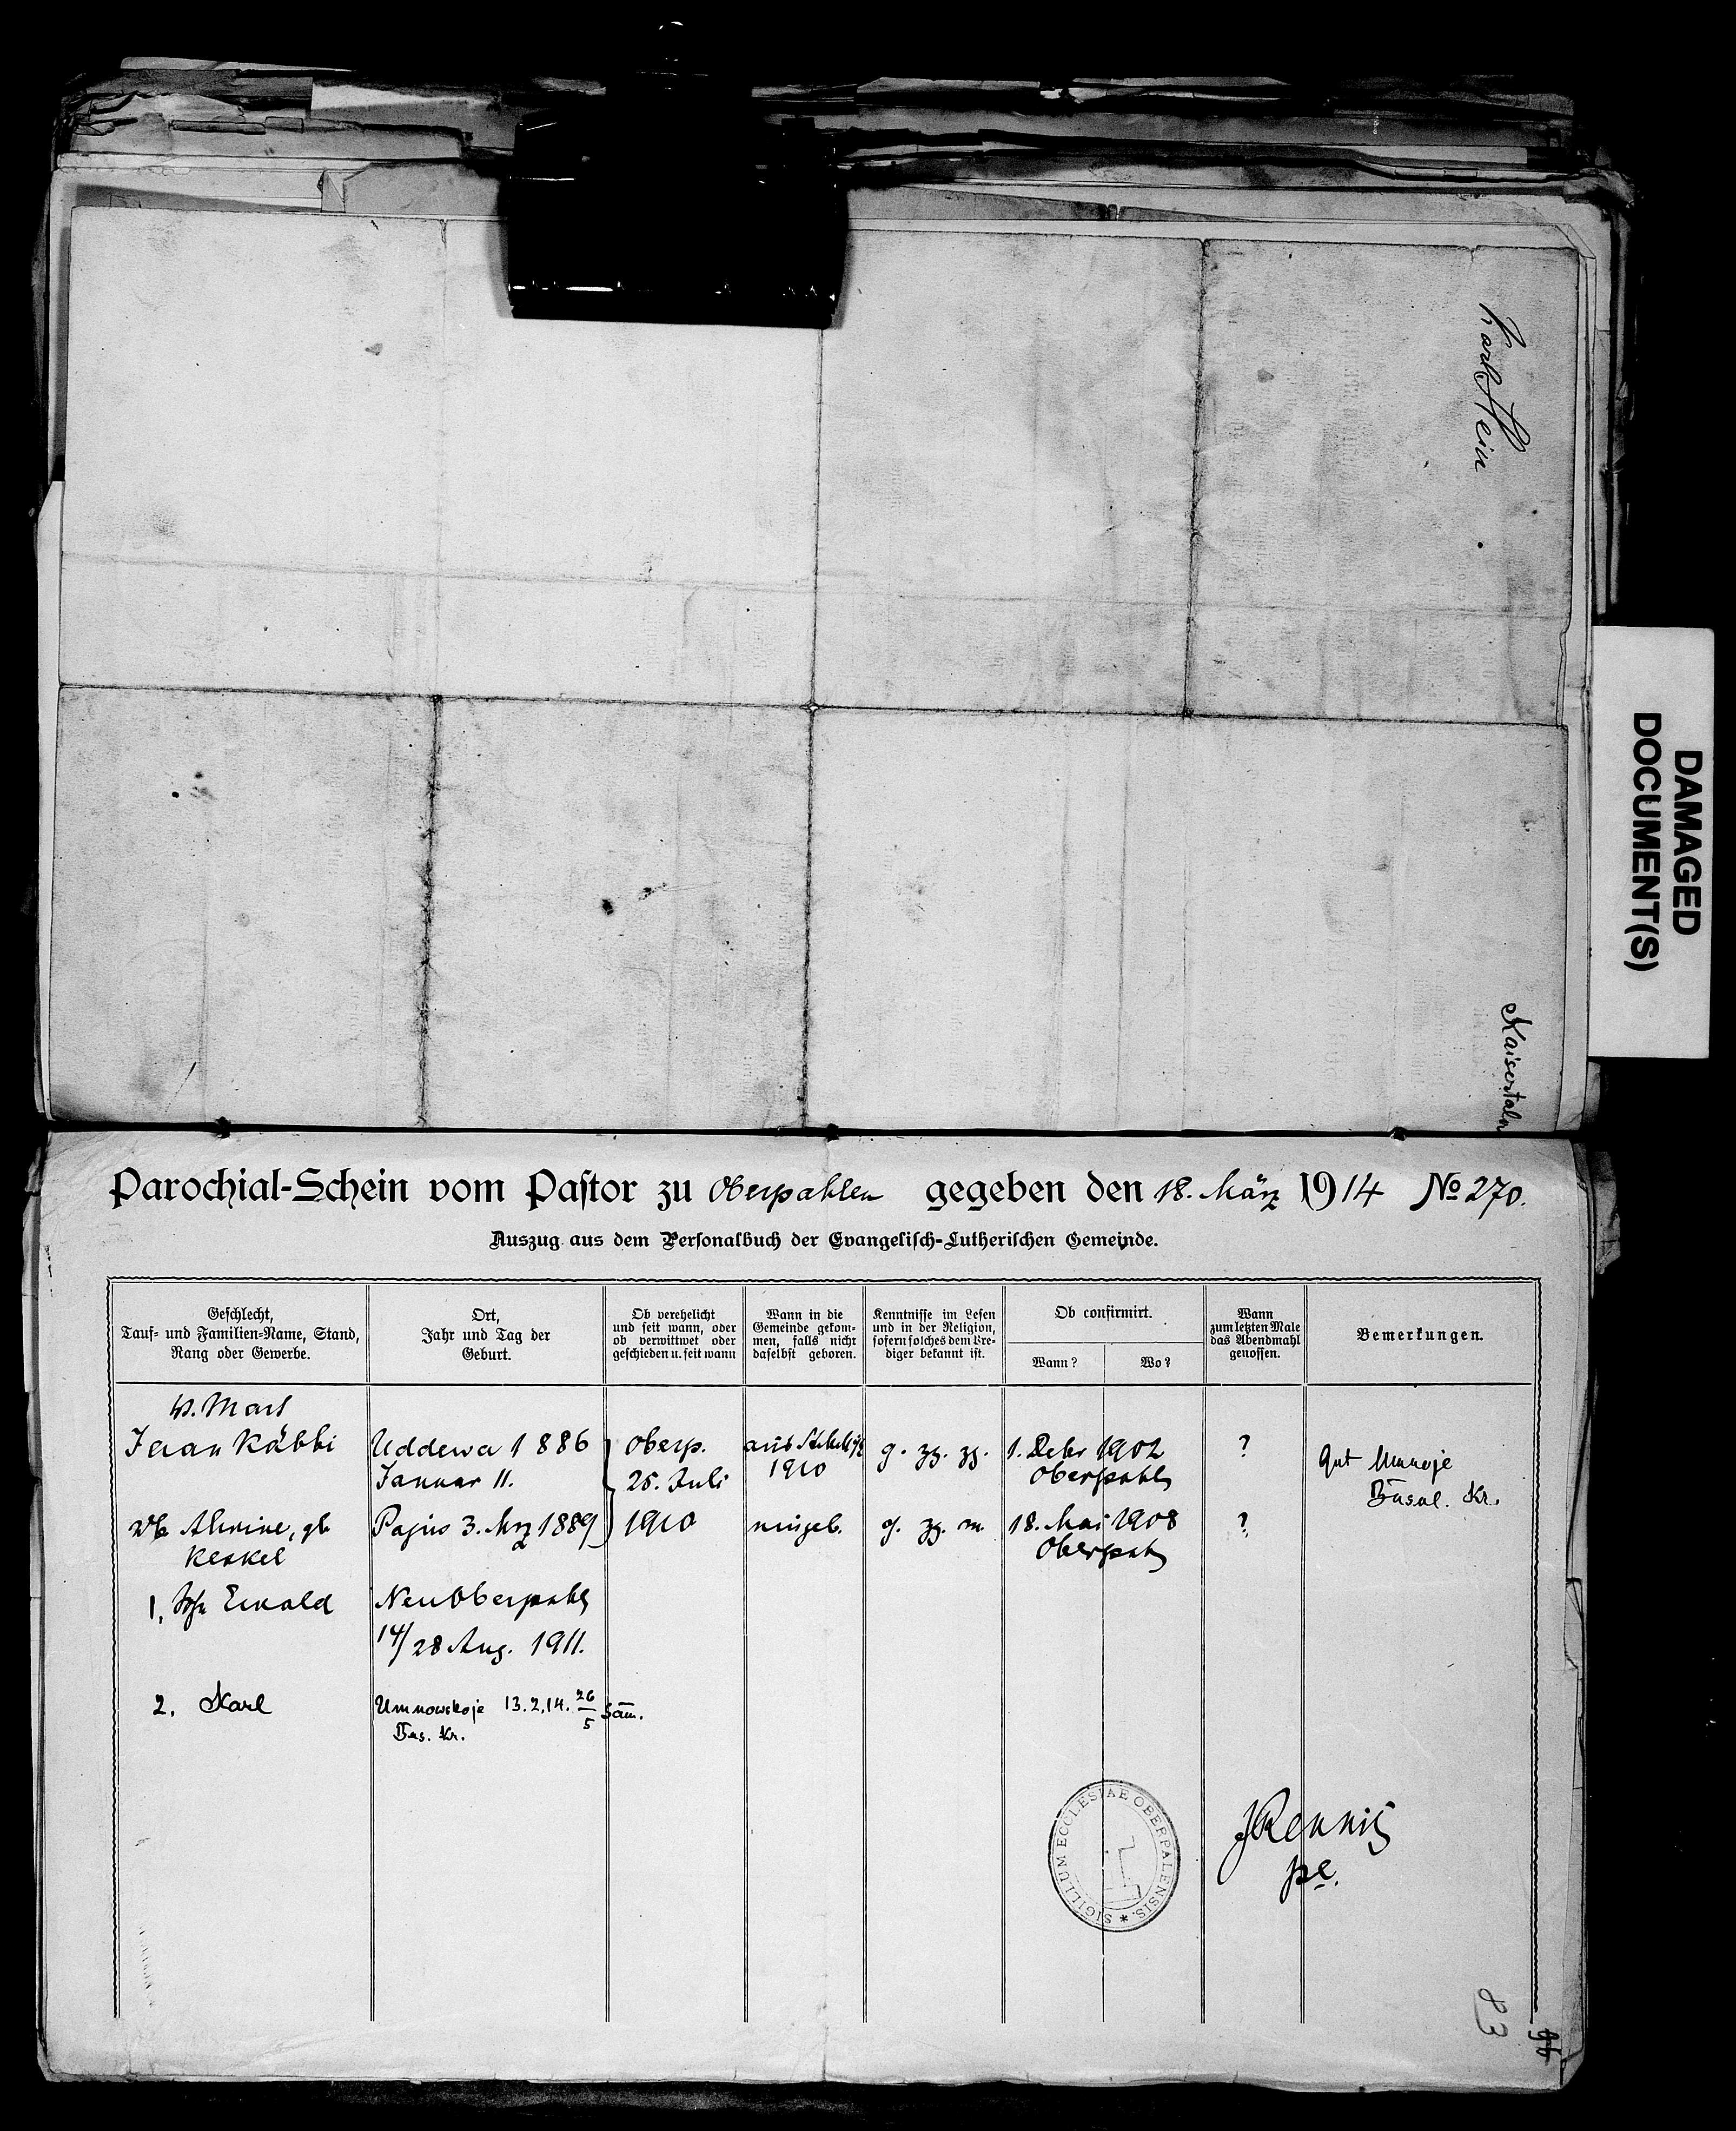 Karl Hein
Kaisertaln
DAMAGED
DOCUMENT(S)
Parochial-Schein vom Pastor zu Oberpahlen gegeben den 18. März 1914 No 270.
Auszug aus dem Personalbuch der Evangelisch-Lutherischen Gemeinde.
Geschlecht,
Tauf- und Familien-Name, Stand,
Rang oder Gewerbe.
Ort,
Jahr und Tag der
Geburt.
Ob verehelicht
und seit wann, oder
ob verwittwet oder
geschieden u. seit wann
Wann in die
Gemeinde gekom-
men, falls nicht
daselbst geboren.
Kenntnisse im Lesen
und in der Religion,
sofern solches dem Pre-
diger bekannt ist.
Ob confirmirt.
Wann?
Wo?
Wann
zum letzten Male
das Abendmahl
genossen.
Bemerkungen.
Mart
Jaan Käbbi
Uddewa 1886
Januar 11.
Oberp.
25. Juli
1910
aus
1910
g. zg. zg.
1. Debr 1902
Oberpahl
?
Gut
Kr.
Wb Alwine, gb
Keskel
Pajus 3. Mrz 1889
eingeb.
g. zg. m.
18. Mai 1908
Oberpahl
?
1. Sohn Ewald
Neu Oberpahl
14/28 Aug. 1911.
2. Karl
Umnowskoje 13.2.14. 26/5
Kr.
SIGILLUM ECCLESIAE OBERPALENSIS. *
JRennit
83